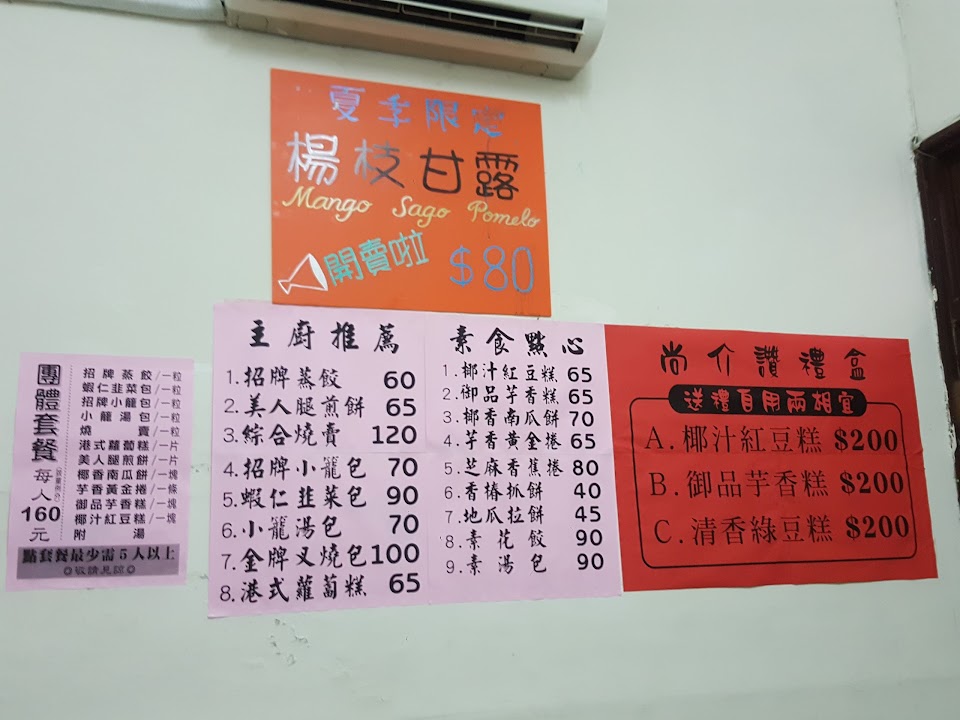 夏季限定
楊枝甘露
Mango Sago Pomelo
開賣啦 $80
團體套餐
每人
160
元
招牌蒸餃/一粒
蝦仁韭菜包/一粒
招牌小籠包/一粒
小籠湯包/一粒
燒賣/一粒
港式蘿蔔糕/一片
美人腿煎餅/一片
椰香南瓜餅/一塊
芋香黃金捲/一條
御品芋香糕/一塊
椰汁紅豆糕/一塊
附湯
點套餐最少需5人以上
◎敬請見諒◎
主廚推薦
1.招牌蒸餃 60
2.美人腿煎餅 65
3.綜合燒賣 120
4.招牌小籠包 70
5.蝦仁韭菜包 90
6.小籠湯包 70
7.金牌叉燒包 100
8.港式蘿蔔糕 65
素食點心
1.椰汁紅豆糕 65
2.御品芋香糕 65
3.椰香南瓜餅 70
4.芋香黃金捲 65
5.芝麻香蕉捲 80
6.香椿抓餅 40
7.地瓜拉餅 45
8.素花餃 90
9.素湯包 90
尚介讚禮盒
送禮自用兩相宜
A.椰汁紅豆糕 $200
B.御品芋香糕 $200
C.清香綠豆糕 $200